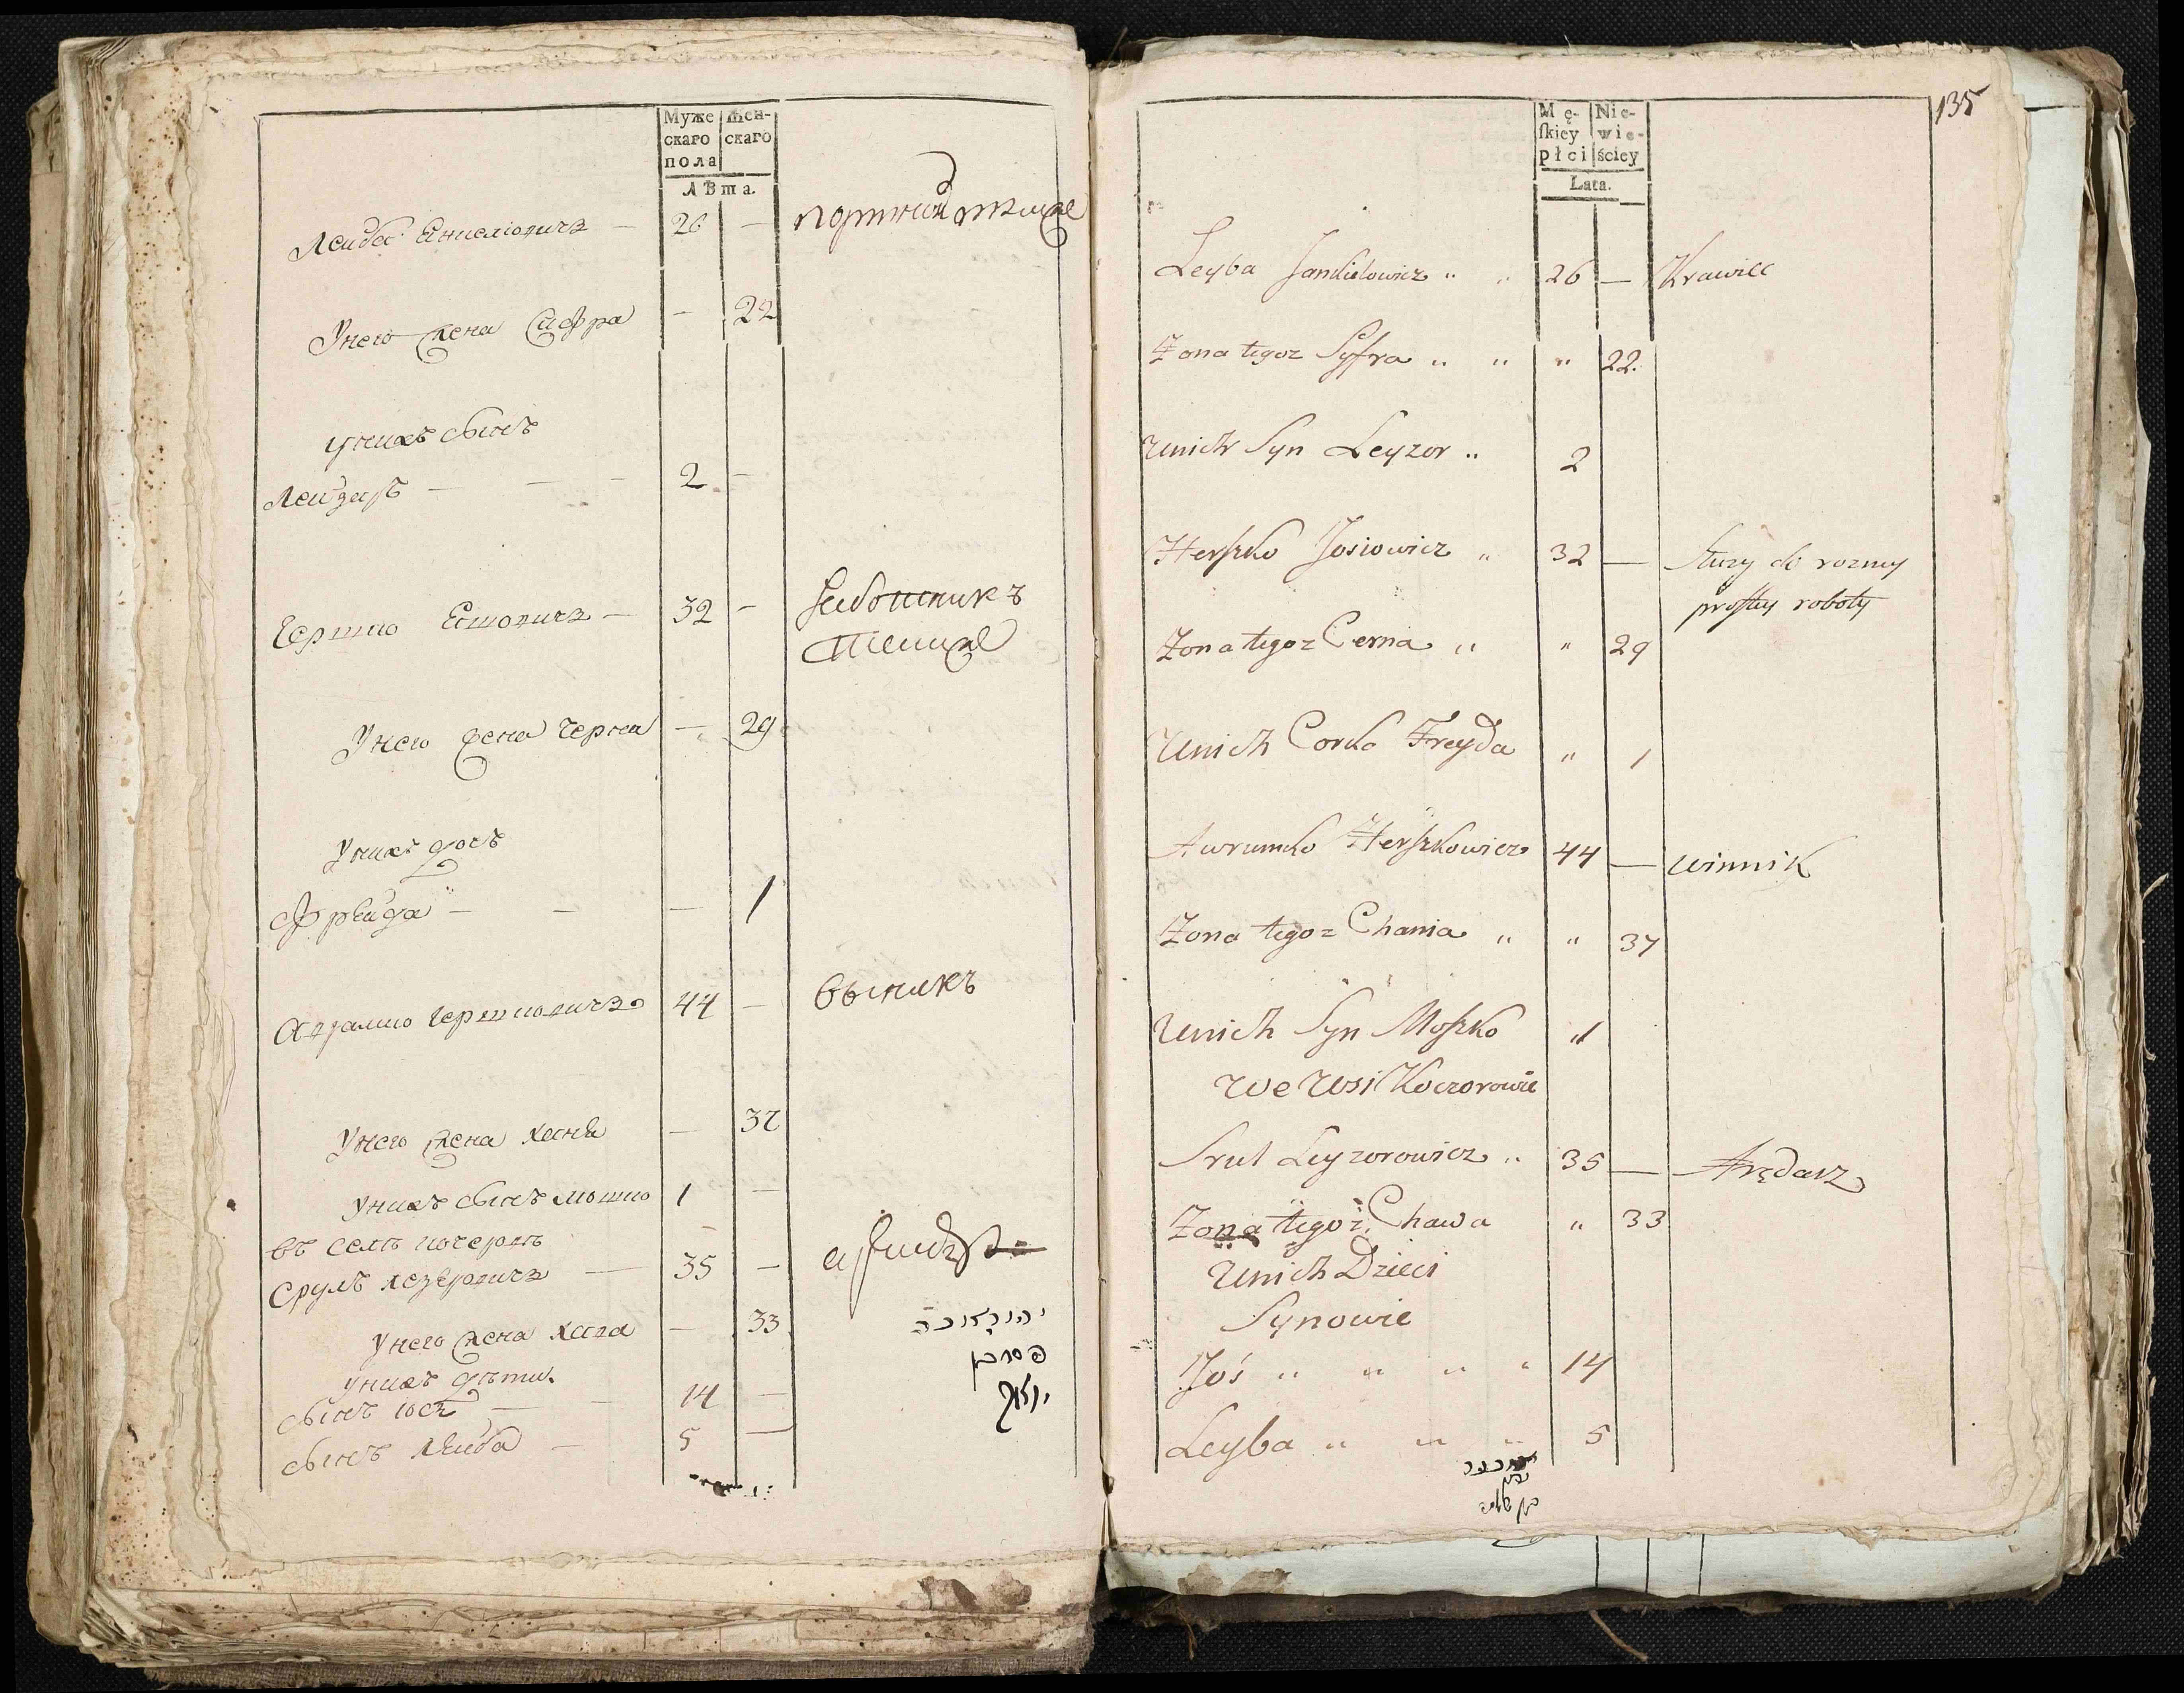 Муже Жен-
скаго скаго
пола
Лѣта.
Лейба Янкелiовичъ — 26 — портной
У него жена Сифра — 22
у нихъ сынъ
Лейзаръ — — — 2 —
Гершко Есiовичъ — 32 —
У него жена Черна — 29
У нихъ дочь
Фрейда — — — 1
Аврамко Гершковичъ 44 — выникъ
У него жена Ханя — 37
У нихъ сынъ Мошко 1 —
въ селѣ
Сруль Лезеровичъ — 35 —
У него жена Хава — 33
У нихъ дѣти
сынъ Иось — — 14 —
сынъ Лейба — 5 —
135
Mę- Nie-
ſkiey wie-
płci ściey
Lata.
Leyba Jankielowicz „ „ 26 — Krawiec
Zona tegoz Syfra „ „ „ 22.
Unich Syn Leyzor „ 2
Herſzko Josiowicz „ 32 — służy do rozney
proſtey roboty
Zona tegoz Cerna „ „ 29
Unich Corka Freyda „ 1
Awrumko Herſzkowicz 44 — winnik
Zona tegoz Chania „ „ 37
Unich Syn Moſzko „1
We Wsi Koczorowie
Srul Leyzorowicz „ 35 — Arędarz
Zona tegoż Chawa „ 33
Unich Dzieci
Synowie
Joś „ „ „ „ 14
Leyba „ „ „ 5